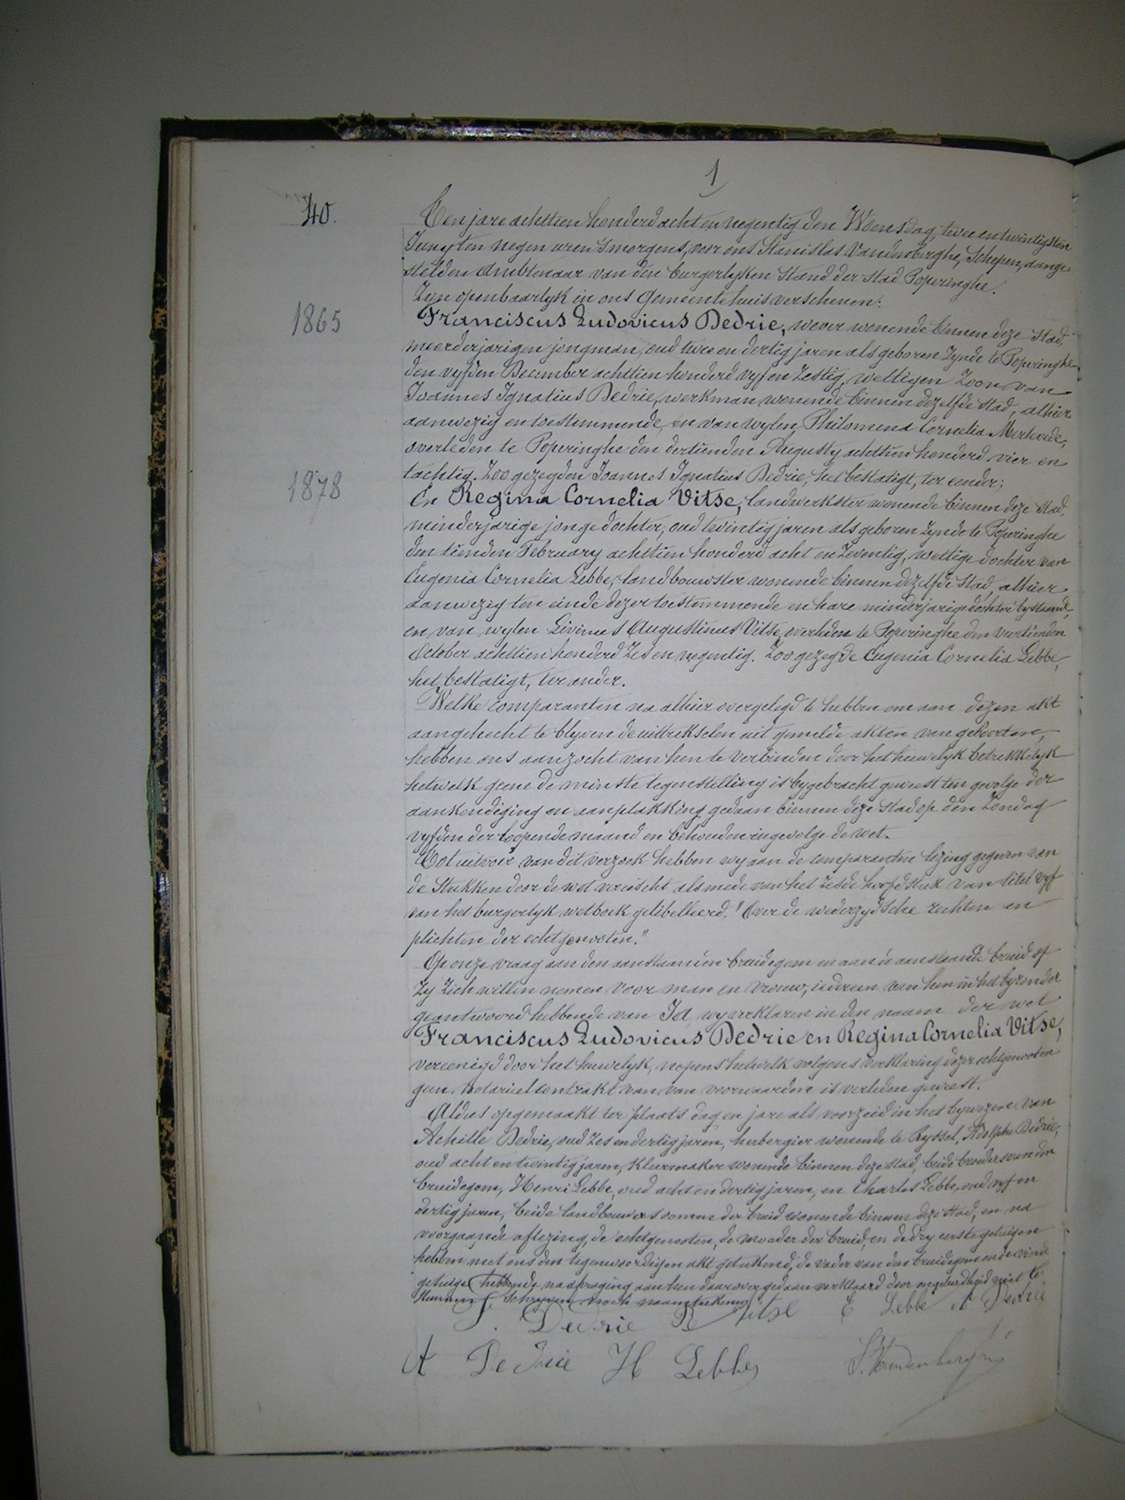 1
40.
Ten jare achttien honderd acht en negentig den Woensdag, twee en twintigsten
Juny ten negen uren smorgens, voor ons Stanislas Vandenberghe, Schepen, aange-
stelden Ambtenaar van den burgerlyken Stand der stad Poperinghe.
Zyn openbaarlyk in ons Gemeentehuis verschenen:
1865
Franciscus Ludovicus Dedrie, wever wonende binnen deze Stad,
meerderjarigen jongman, oud twee en dertig jaren als geboren zynde te Poperinghe
den vyfden December achttien honderd vyf en zestig, wettigen zoon van
Joannes Ignatius Dedrie, werkman wonende binnen dezelfde stad, alhier
aanwezig en toestemmende, en van wylen Philomena Cornelia
overleden te Poperinghe den dertienden Augusty achttien honderd vier en
tachtig. Zoo gezegden Joannes Ignatius Dedrie, het bestatigt, ter eender;
1878
En Regina Cornelia Vitse, landwerkster wonende binnen deze Stad
minderjarige jonge dochter, oud twintig jaren als geboren zynde te Poperinghe
den tienden February achttien honderd acht en zeventig, wettige dochter van
Eugenia Cornelia Lebbe, landbouwster wonende binnen dezelfde Stad, alhier
aanwezig ten einde dezer toestemmende en hare minderjarige dochter bystaande,
en van wylen Livinus Augustinus Vitse, overleden te Poperinghe den veertienden
October achttien honderd zes en negentig. Zoo gezegde Eugenia Cornelia Lebbe,
het bestatigt, ter ander.
Welke comparanten na alhier overgelegd te hebben om aan dezen akt
aangehecht te blyven de uittrekselen uit gemelde akten van geboorten,
hebben ons aanzocht van hen te verbinden door het huwelyk betrekkelyk
hetwelk geene de minste tegenstelling is bygebracht geweest ten gevolge der
aankondiging en aanplakking gedaan binnen deze Stad op den Zondag
vyfden der loopende maand en behouden ingevolge de wet.
Tot uitvoer van dit verzoek hebben wy aan de comparanten lezing gegeven van
de Stukken door de wet vereischt alsmede van het zesde hoofdstuk van titel vyf
van het burgerlyk wetboek getibelleerd, "Over de wederzydsche rechten en
plichten der echtgenooten."
Op onze vraag aan den aanstaanden bruidegom en aan de aanstaande bruid of
zy zich willen nemen voor man en vrouw, iedereen van hen in het byzonder
geantwoord hebbende van Ja, wy verklaren in den naam der wet
Franciscus Ludovicus Dedrie en Regina Cornelia Vitse,
vereenigd door het huwelyk, nopens hetwelk volgens verklaring dezer echtgenooten
geen notarieel contrakt van van voorwaarden is verleden geweest.
Aldus opgemaakt ter plaats dag en jare als voorzeid in het bywezen van
Achille Dedrie, oud zes en dertig jaren, herbergier wonende te Ryssel, Adolphe Dedrie,
oud acht en twintig jaren, kleermaker wonende binnen deze Stad, beide broeders van den
bruidegom, Henri Lebbe, oud acht en dertig jaren, en Charles Lebbe, oud vyf en
dertig jaren, beide landbouwers oomen der bruid wonende binnen deze Stad, en na
voorgaande aflezing, de echtgenooten, de moeder der bruid, en de dry eerste getuigen
hebben met ons den tegenwoordigen akt geteekend, de vader van den bruidegom en de vierde
getuige hebbende na afvraging aan hen daarover gedaan verklaard door ongeleerdheid niet te
kunnen schryven noch naamteekenen.
F. Dedrie R Vitse E Lebbe A Dedrie
A Dedrie H Lebbe S. Vandenberghe